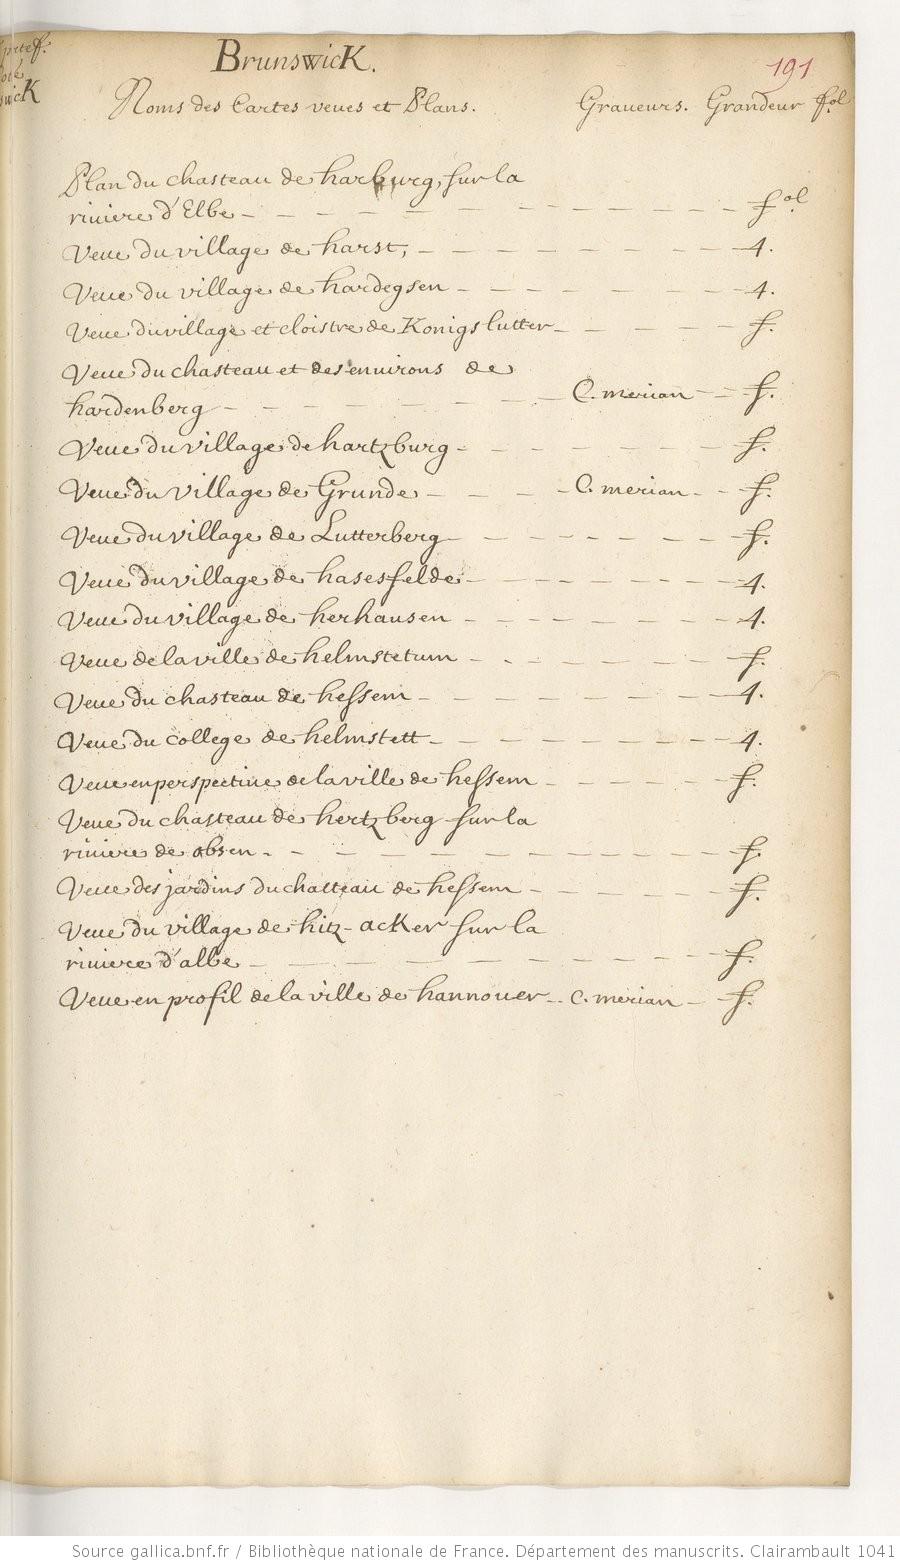 Brunswick.
191
Noms des Cartes veues et Plans. Graueurs. Grandeur fol
Plan du chasteau de harburg, sur la
riuiere d'Elbe - - - - - - - - - - - fol.
Veue du village de harst, - - - - - - - - 4.
Veue du village de hardegsen - - - - - - - 4.
Veue du village et cloistre de Konigslutter - - - - f.
Veue du chasteau et des enuirons de
hardenberg - - - - - - - C. merian - - f.
Veue du village de hartzburg - - - - - - - f.
Veue du village de Grunde - - - - C. merian - - f.
Veue du village de Lutterberg - - - - - - - f.
Veue du village de hasesfelde - - - - - - - 4.
Veue du village de herhausen - - - - - - - 4.
Veue de la ville de helmstetum - - - - - - - f.
Veue du chasteau de hessem - - - - - - - - 4.
Veue du college de helmstett - - - - - - - - 4.
Veue en perspectiue de la ville de hessem - - - - - f.
Veue du chasteau de hertzberg sur la
riuiere de obsen - - - - - - - - - - - f.
Veue des jardins du chatteau de hessem - - - - - - f.
Veue du village de hitz-acker sur la
riuiere d'albe - - - - - - - - - - - f.
Veue en profil de la ville de hannouer - - C. merian - f.
Source gallica.bnf.fr / Bibliothèque nationale de France. Département des manuscrits. Clairambault 1041